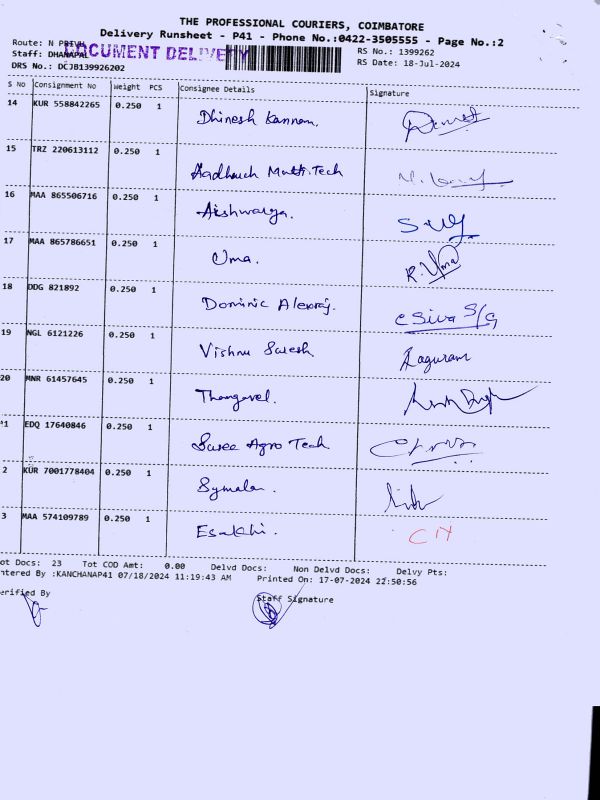 THE PROFESSIONAL COURIERS, COIMBATORE
Delivery Runsheet - P41 - Phone No.:0422-3505555 - Page No.:2
Route: N
RS No.: 1399262
DOCUMENT DELIVERY
Staff: DHANAPAL
RS Date: 18-Jul-2024
DRS No.: DCJB139926202
S No Consignment No Weight PCS Consignee Details Signature
14 KUR 558842265 0.250 1 Dhinesh Kannan.
15 TRZ 220613112 0.250 1 Tech
16 MAA 865506716 0.250 1 Aishwarya.
17 MAA 865786651 0.250 1 Uma. R. Uma
18 DDG 821892 0.250 1 Dominic
19 NGL 6121226 0.250 1 Vishnu Suresh Raguram
20 MNR 61457645 0.250 1 Thangavel.
1 EDQ 17640846 0.250 1 Agro Tech
2 KUR 7001778404 0.250 1 Symala.
3 MAA 574109789 0.250 1 Esakki.
ot Docs: 23 Tot COD Amt: 0.00 Delvd Docs: Non Delvd Docs: Delvy Pts:
ntered By :KANCHANAP41 07/18/2024 11:19:43 AM Printed On: 17-07-2024 22:50:56
erified By Staff Signature